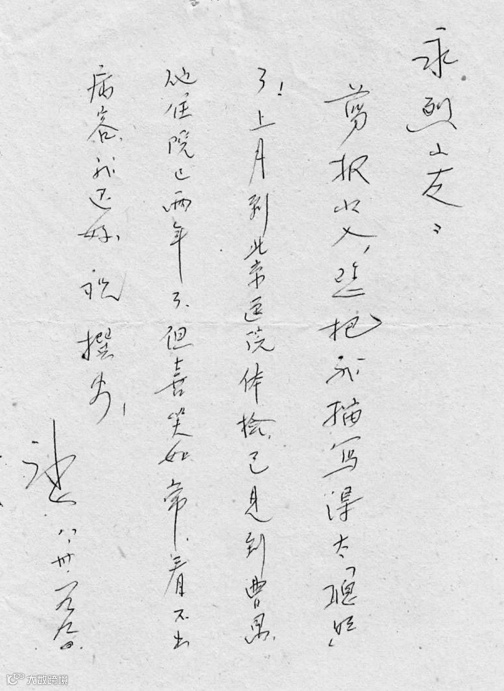 永烈小友：
剪报收入，您把我描写得太聪明
了！上月到北京医院体检，已见到曹禺，
他住院已两年了，但喜笑如常，看不出
病容，我还好，祝撰安！
冰心 八、卅、一九九〇